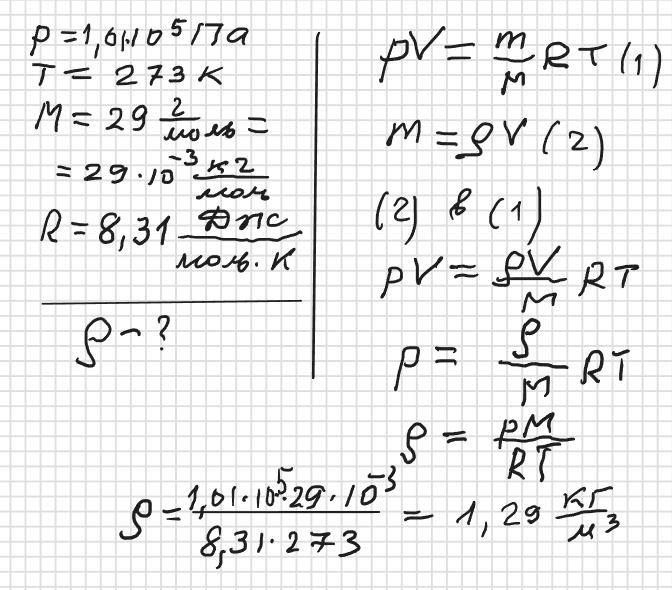 p = 1,01·10⁵ Па
T = 273 К
M = 29 г/моль =
= 29·10⁻³ кг/моль
R = 8,31 Дж/моль·К
ρ - ?
pV = m/M RT (1)
m = ρV (2)
(2) в (1)
pV = ρV/M RT
p = ρ/M RT
ρ = pM/RT
ρ = 1,01·10⁵·29·10⁻³/8,31·273 = 1,29 кг/м³